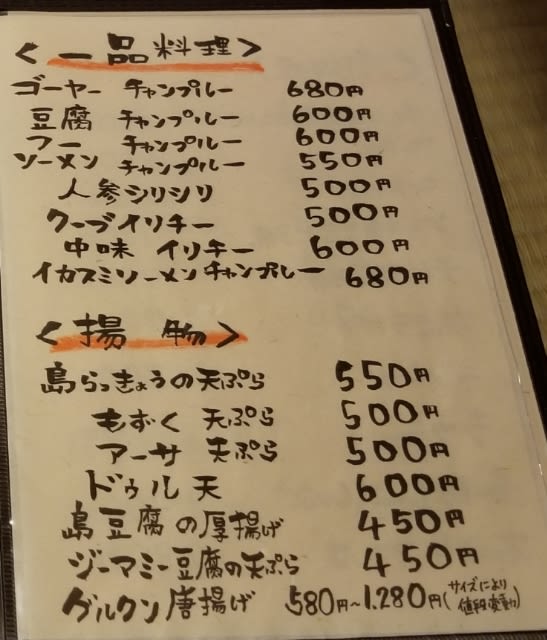 <一品料理>
ゴーヤー チャンプルー 680円
豆腐 チャンプルー 600円
フー チャンプルー 600円
ソーメン チャンプルー 550円
人参シリシリ 500円
クーブイリチー 500円
中味 イリチー 600円
イカスミソーメンチャンプルー 680円
<揚物>
島らっきょうの天ぷら 550円
もずく 天ぷら 500円
アーサ 天ぷら 500円
ドゥル天 600円
島豆腐の厚揚げ 450円
ジーマミー豆腐の天ぷら 450円
グルクン唐揚げ 580円~1.280円(サイズにより値段変動)